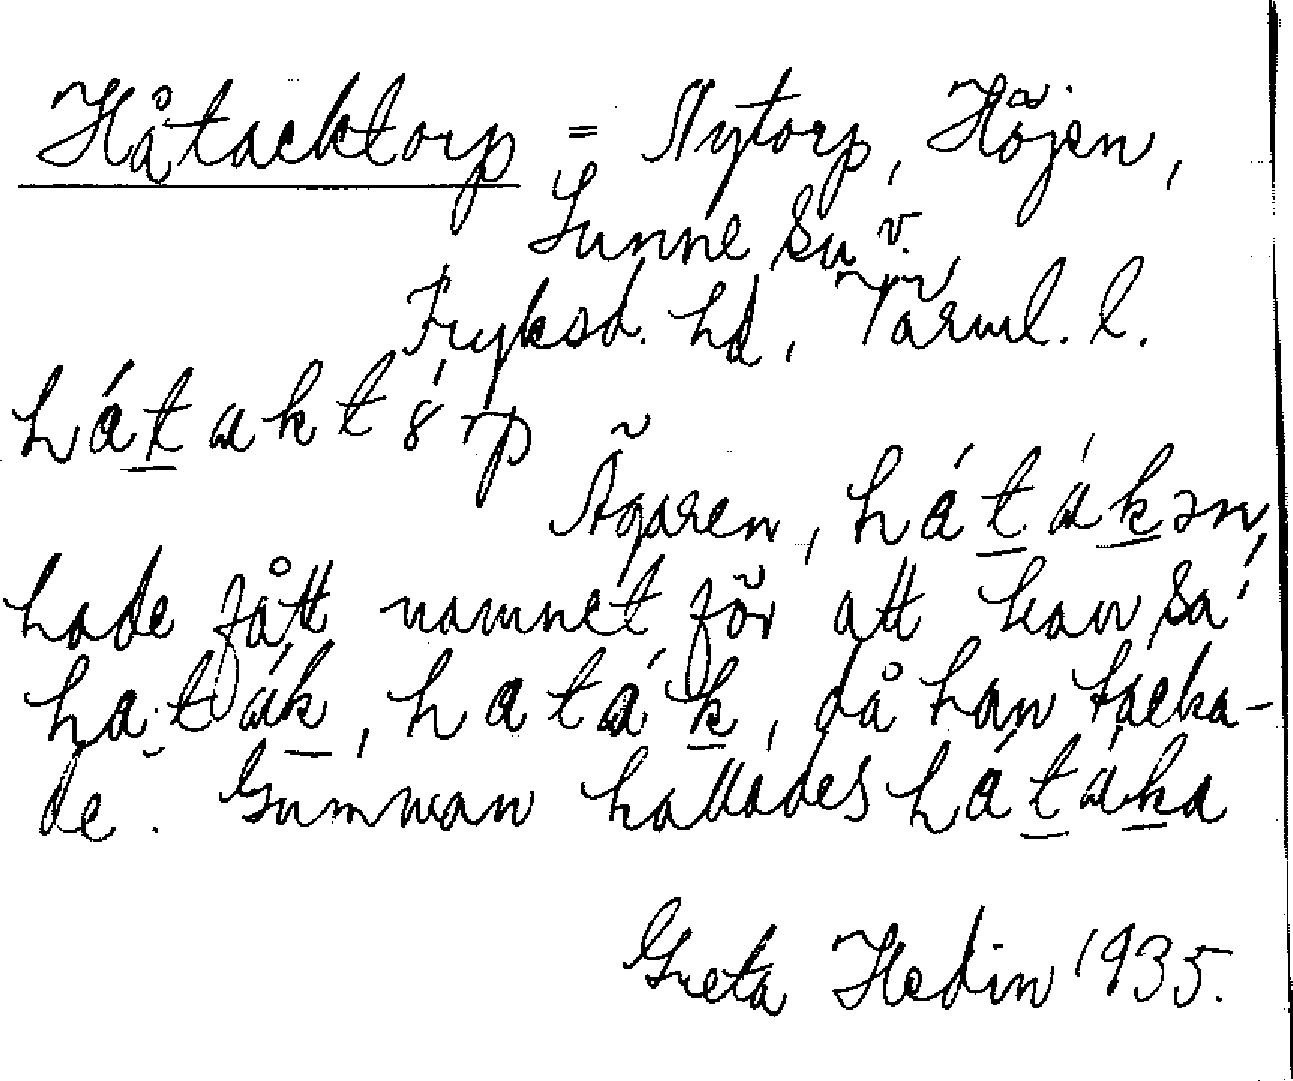 Håtacktorp = Nytorp, Höjen,
Sunne sn v.
Fryksd. hd, Värml. l.
hátakt8́rp
Ägaren, hátákən,
hade fått namnet för att han sa'
haták, haták, då han tacka-
de. Gumman kallades hátáka
Greta Hedin 1935.